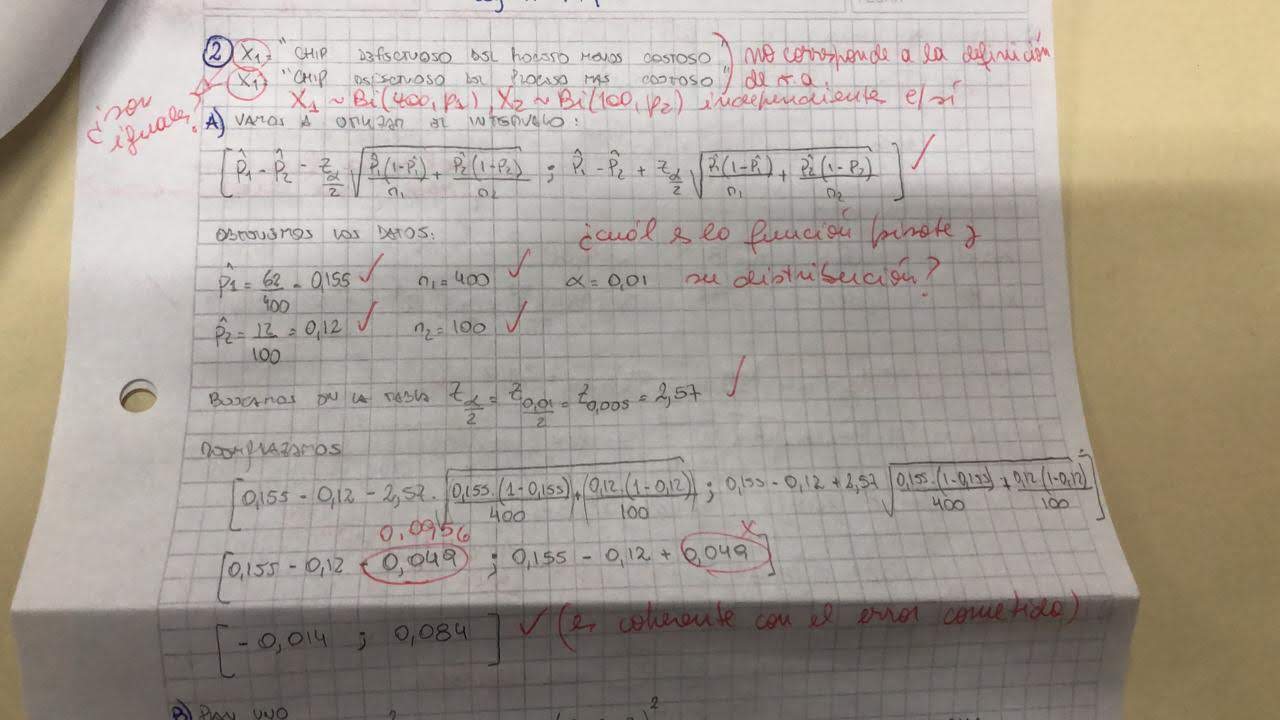 ② X1= "CHIP DEFECTUOSO DEL PROCESO MENOS COSTOSO" no corresponde a la definición
X1= "CHIP DEFECTUOSO DEL PROCESO MAS COSTOSO" de r.a.
¿son iguales?
X1 ~ Bi(400, p1), X2 ~ Bi(100, p2) independiente e/sí
A) VAMOS A UTILIZAR EL INTERVALO:
[p̂1 - p̂2 - z_{α/2} √(p̂1(1-p̂1)/n1 + p̂2(1-p̂2)/n2) ; p̂1 - p̂2 + z_{α/2} √(p̂1(1-p̂1)/n1 + p̂2(1-p̂2)/n2)] ✓
OBTENEMOS LOS DATOS: ¿cuál es la función pivote y
p̂1 = 62/400 = 0,155 ✓ n1 = 400 ✓ α = 0,01 su distribución?
p̂2 = 12/100 = 0,12 ✓ n2 = 100 ✓
BUSCAMOS EN LA TABLA z_{α/2} = z_{0,01/2} = z_{0,005} = 2,57 ✓
REEMPLAZAMOS
[0,155 - 0,12 - 2,57 · √(0,155·(1-0,155)/400 + (0,12·(1-0,12))/100) ; 0,155 - 0,12 + 2,57 √(0,155·(1-0,155)/400 + 0,12(1-0,12)/100)]
0,0956 x
[0,155 - 0,12 - 0,049 ; 0,155 - 0,12 + 0,049]
[-0,014 ; 0,084] ✓ (es coherente con el error cometido)
B) PARA UNO